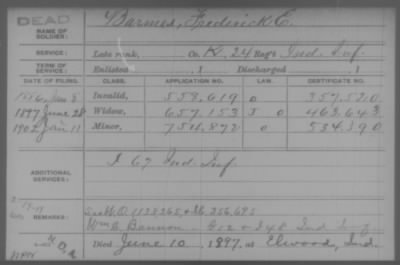 DEAD
NAME OF SOLDIER: Barmes, Frederick E.
SERVICE: Late rank, Co. K, 24 Reg't Ind. Inf.
TERM OF SERVICE: Enlisted Discharged
DATE OF FILING. CLASS. APPLICATION NO. LAW. CERTIFICATE NO.
1886, Jan 8 Invalid, 558,619 357,520
1897 June 28 Widow, 657,153 463,643
1902 Jan 11 Minor, 754,872 534,390
ADDITIONAL SERVICES: I 67 Ind Inf
REMARKS: 1138265 256,695
Wm C. Bannon Ind Inf
Died June 10, 1897, at Elwood, Ind.